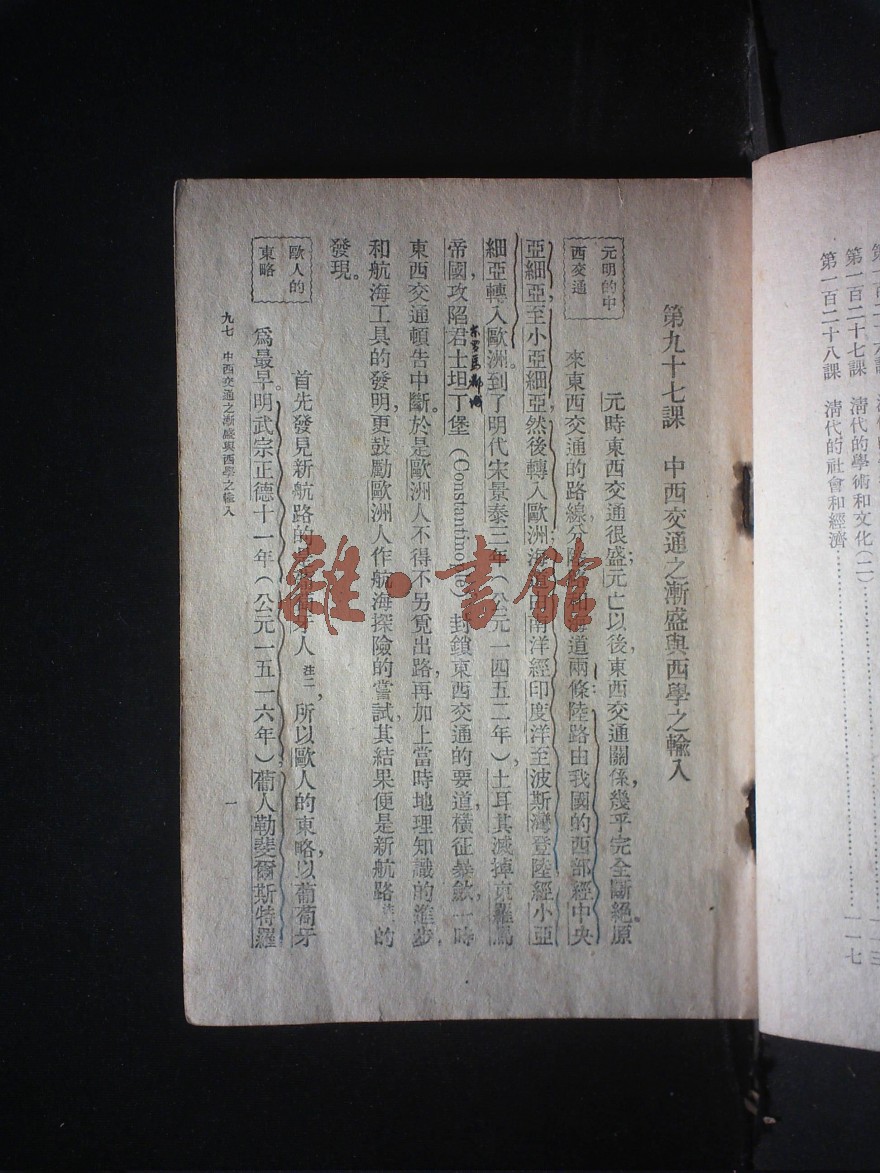 第一百二十七課 清代的學術和文化(二)
第一百二十八課 清代的社會和經濟……一一七
第九十七課 中西交通之漸盛與西學之輸入
元明的中
西交通
元時東西交通很盛;元亡以後,東西交通關係,幾乎完全斷絕。原
來東西交通的路線,分陸道和海道兩條:陸路由我國的西部經中央
亞細亞,至小亞細亞,然後轉入歐洲;海道由南洋經印度洋至波斯灣登陸,經小亞
細亞轉入歐洲。到了明代宋景泰三年(公元一四五二年),土耳其滅掉東羅馬
帝國,攻陷君士坦丁堡(Constantinople)封鎖東西交通的要道,橫征暴斂,一時
東羅馬都城
東西交通頓告中斷。於是歐洲人不得不另覓出路,再加上當時地理知識的進步,
和航海工具的發明,更鼓勵歐洲人作航海探險的嘗試,其結果便是新航路的
發現。
歐人的
東略
首先發見新航路的是葡萄牙人注二,所以歐人的東略,以葡萄牙
爲最早。明武宗正德十一年(公元一五一六年),葡人勒斐爾斯特羅
九七 中西交通之漸盛與西學之輸入
一
雜·書館